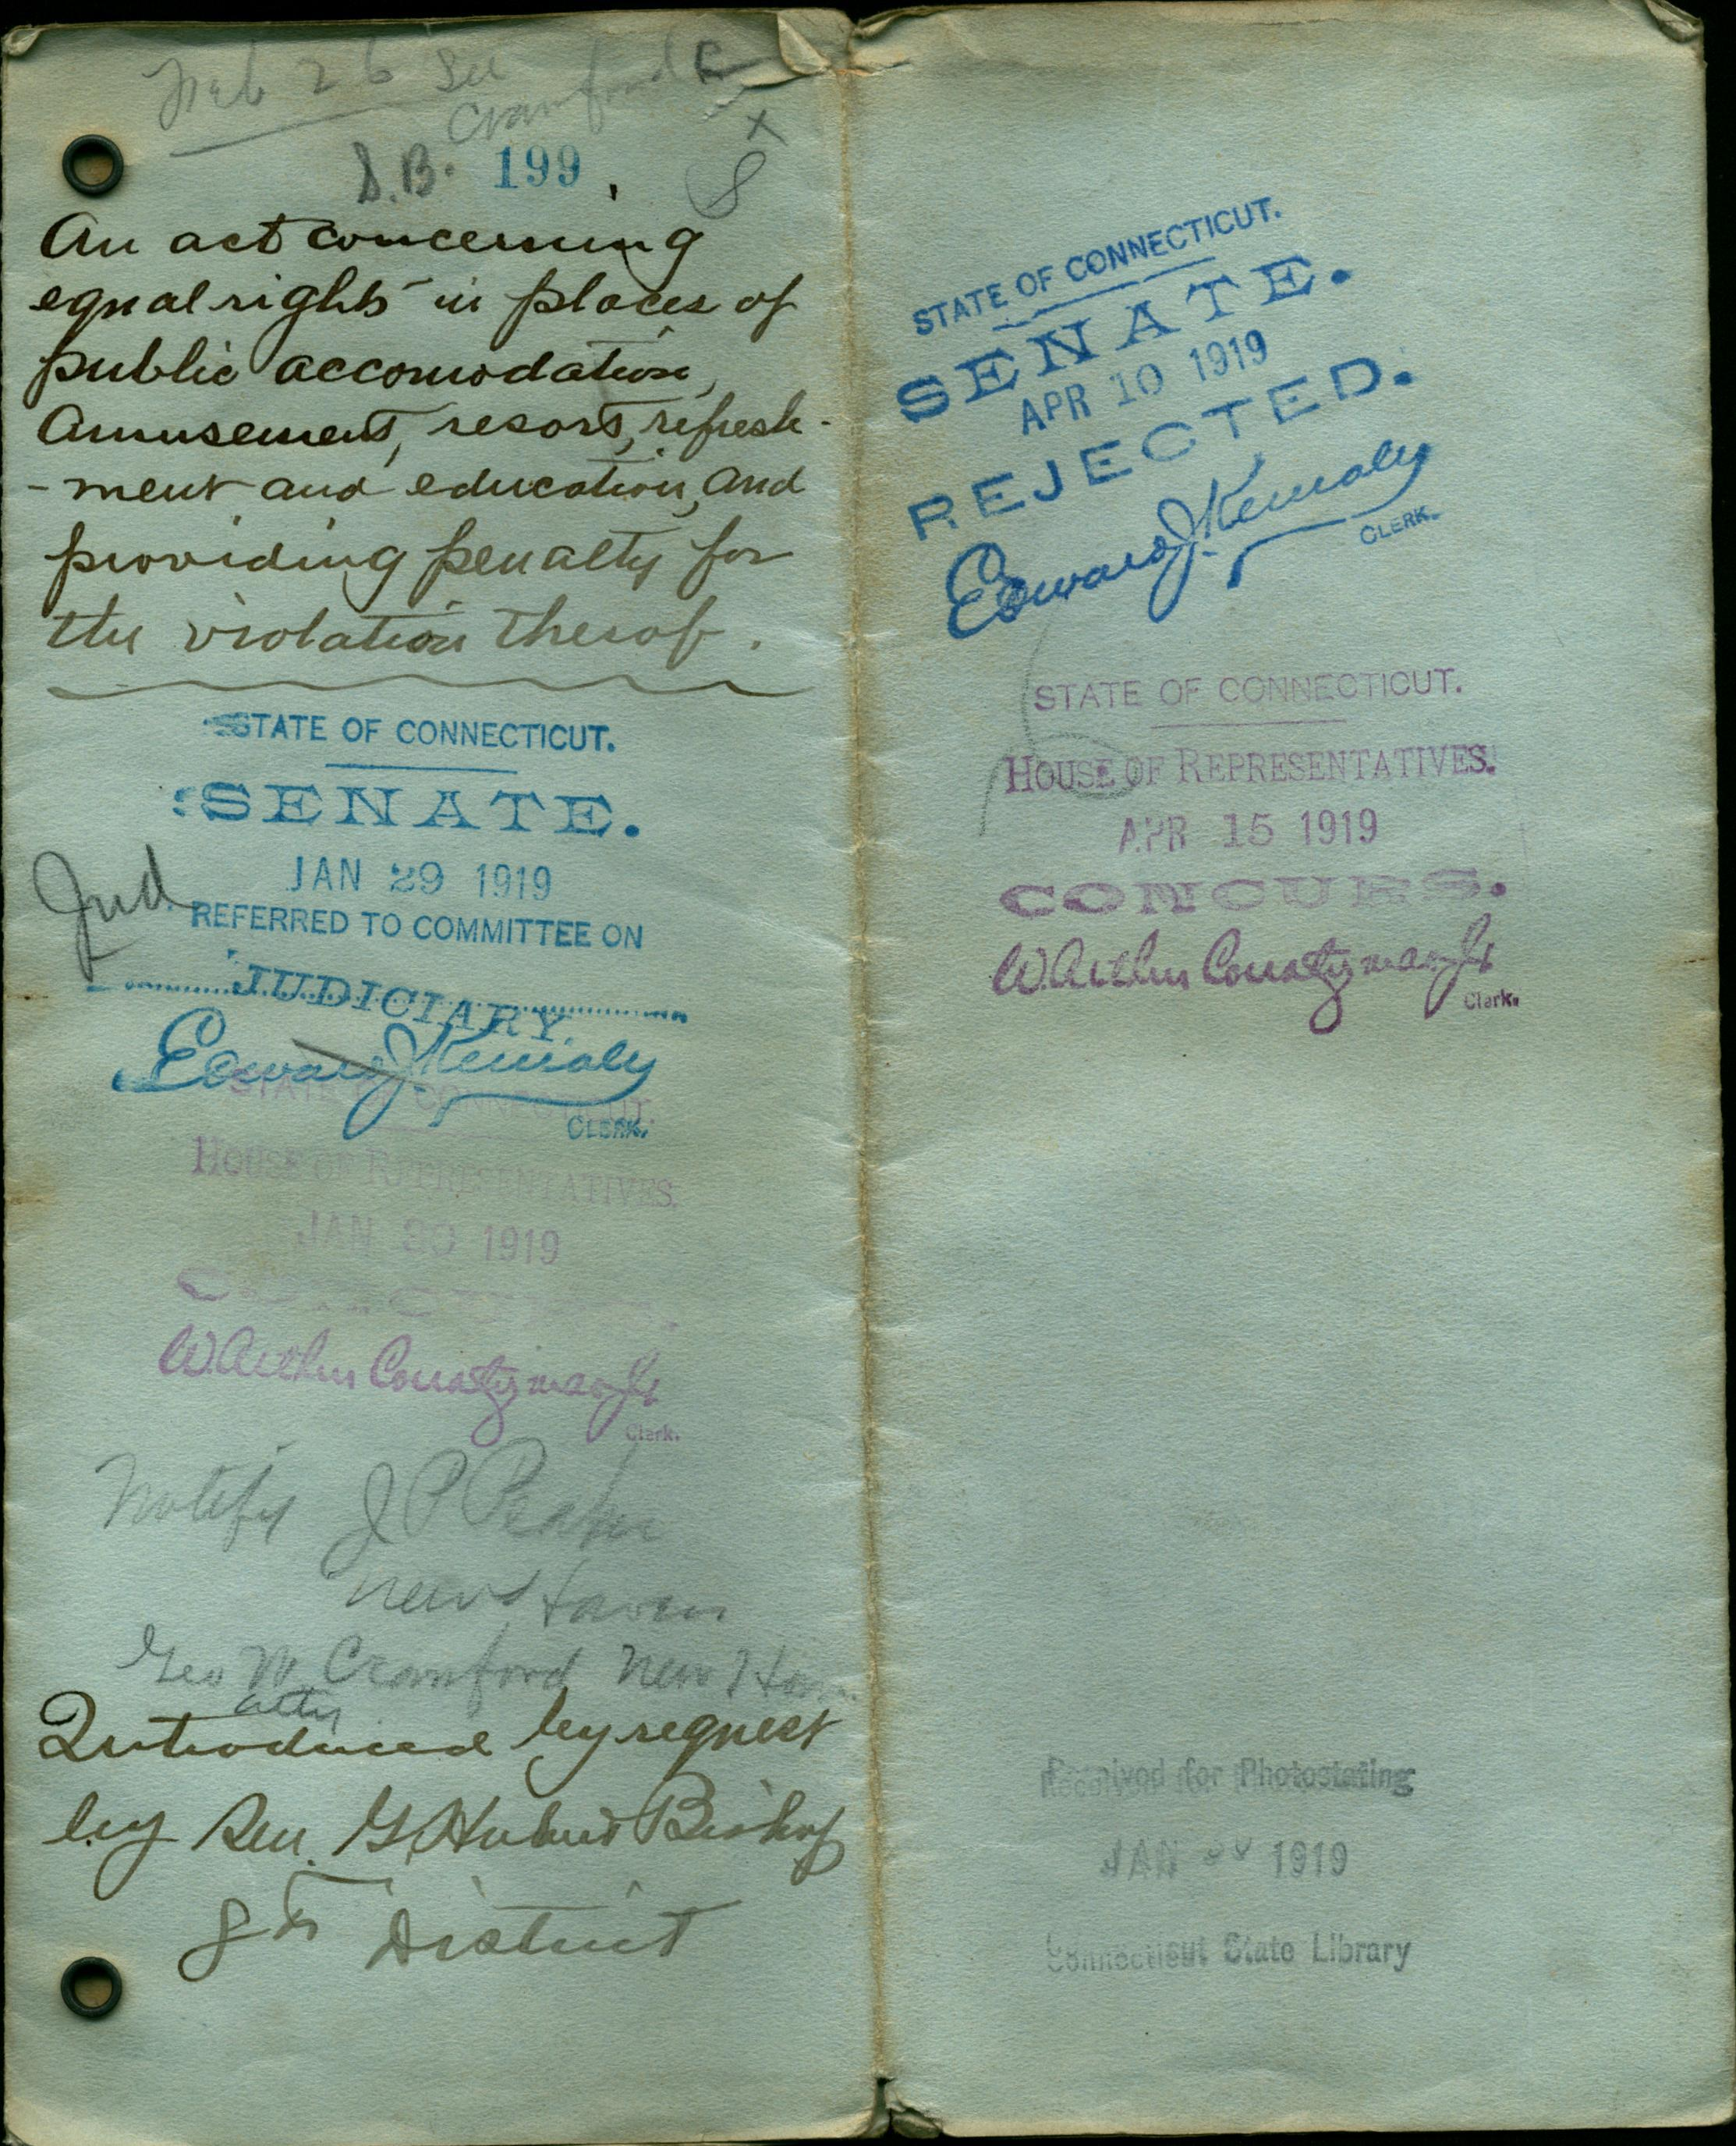 Feb 26 See
Crawford
S.B. 199
8
An act concerning
equal rights in places of
public accomodation,
amusement, resort, refresh-
-ment and education, and
providing penalty for
the violation therof.
STATE OF CONNECTICUT.
SENATE.
JAN 29 1919
Jud.
REFERRED TO COMMITTEE ON
JUDICIARY
Edward J. Kenealy
CLERK.
STATE OF CONNECTICUT.
HOUSE OF REPRESENTATIVES.
JAN 30 1919
W. Arthur Countryman Jr
Clerk.
Notify J P Peaker
New Haven
Geo W Crawford New Haven
atty
Introduced by request
by Sen. G. Hubert Bishop
8th District
STATE OF CONNECTICUT.
SENATE.
APR 10 1919
REJECTED.
Edward J. Kenealy
CLERK.
STATE OF CONNECTICUT.
HOUSE OF REPRESENTATIVES.
APR 15 1919
CONCURS.
W. Arthur Countryman Jr
Clerk.
Received for Photostating
JAN 1919
Connecticut State Library